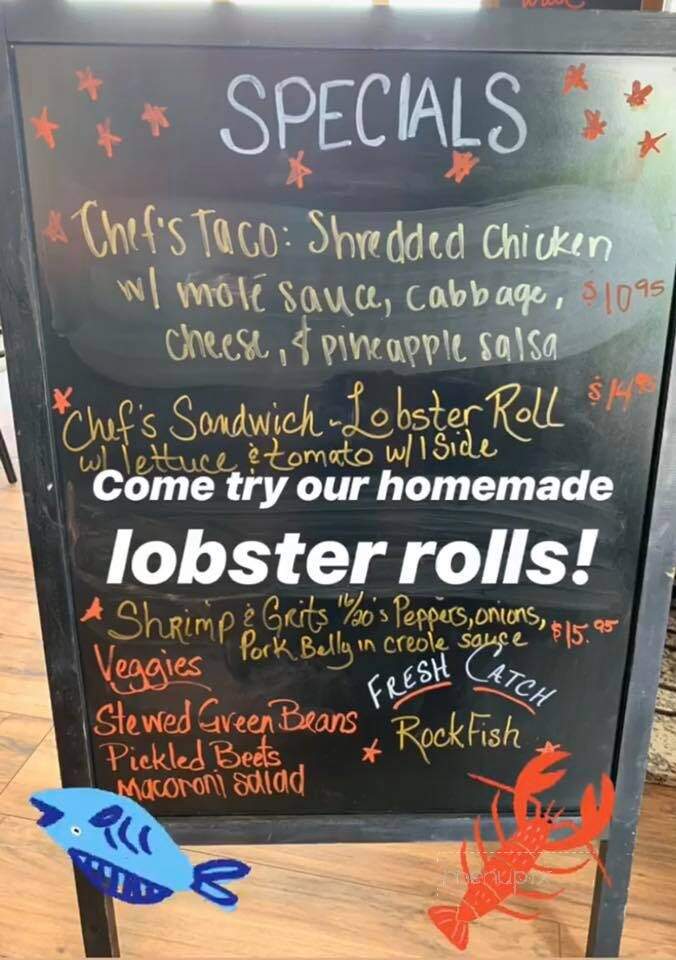 SPECIALS
Chef's Taco: Shredded Chicken
w/ molé sauce, cabbage, $10.95
cheese, & pineapple salsa
Chef's Sandwich - Lobster Roll $14.95
w/ lettuce & tomato w/ 1 Side
Come try our homemade
lobster rolls!
Shrimp & Grits 16/20's Peppers, onions, $15.95
Pork Belly in creole sauce
Veggies
FRESH CATCH
Stewed Green Beans
RockFish
Pickled Beets
Macoroni Salad
menupix